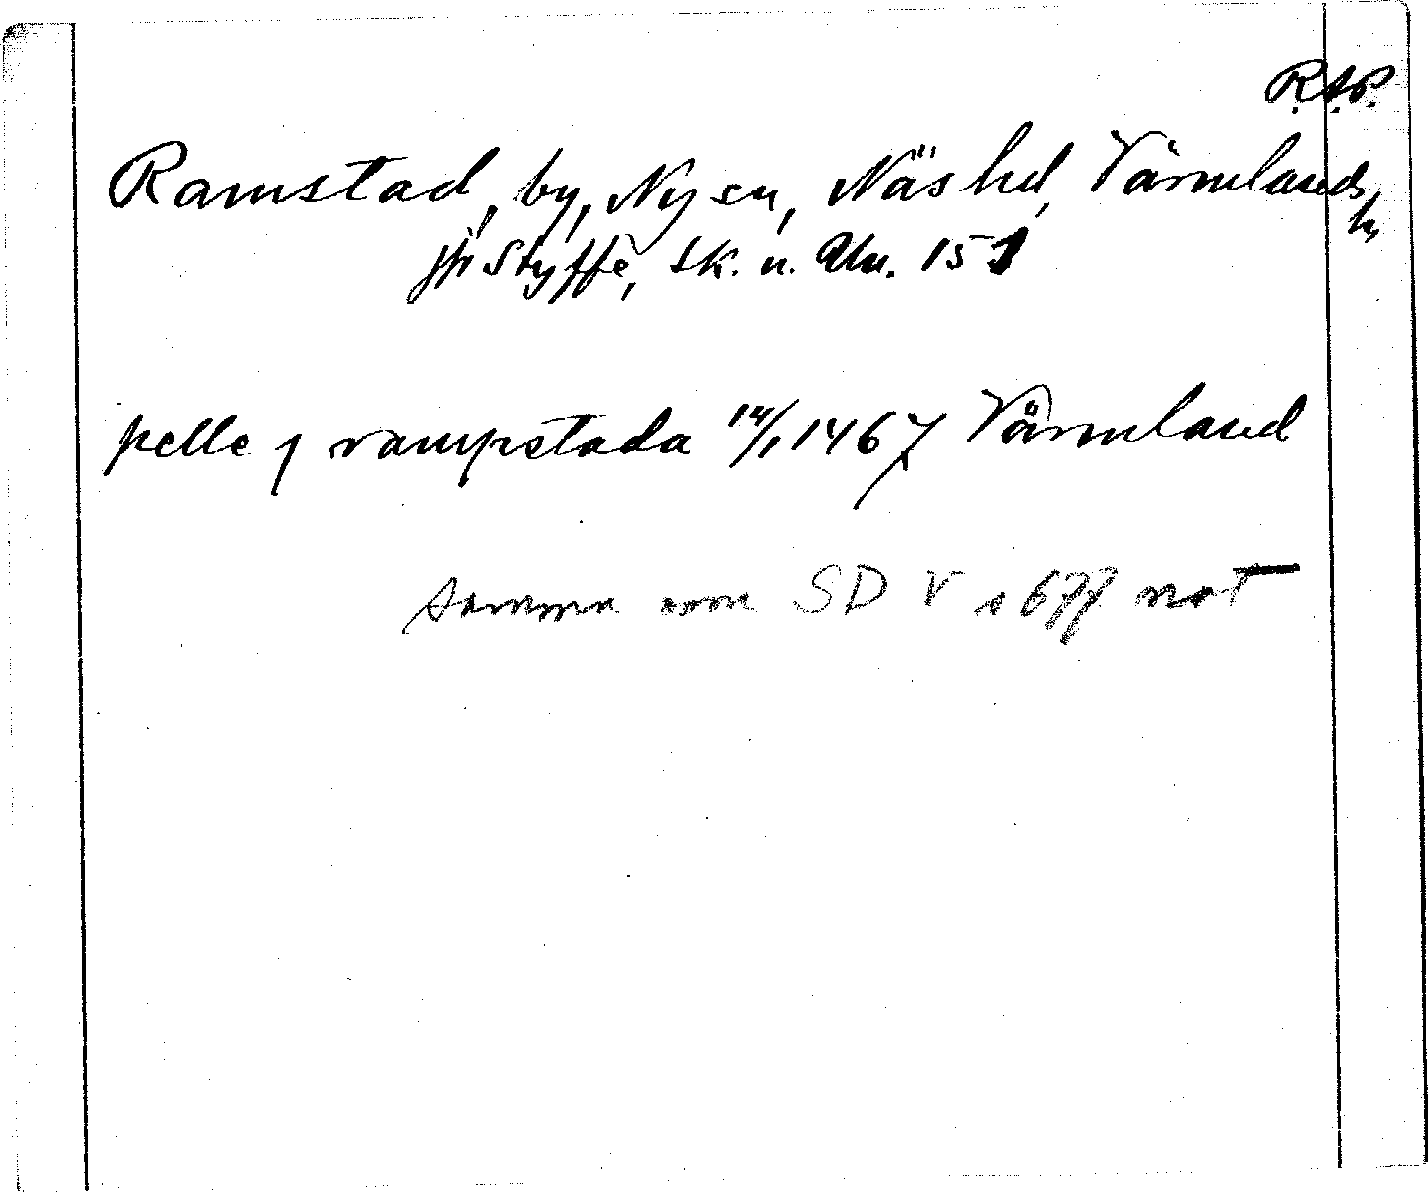 R.A.P.
Ramstad, by, Ny sn, Näs hd, Värmlands
l,
jfr Styffe, Sk. u. Un. 151
pelle j rampstada 14/1 1467 Värmland
samma som SD V s 677 not